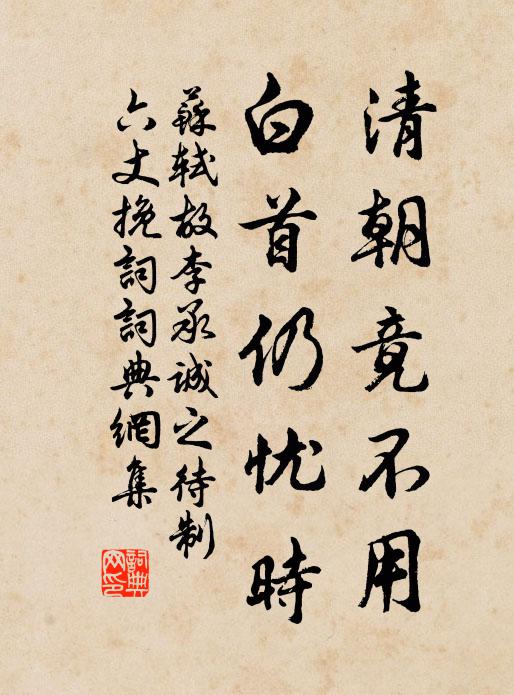 清朝竟不用
白首仍忧時
蘇軾故李承誠之待制
六丈挽詞詞典網集
詞典
网印